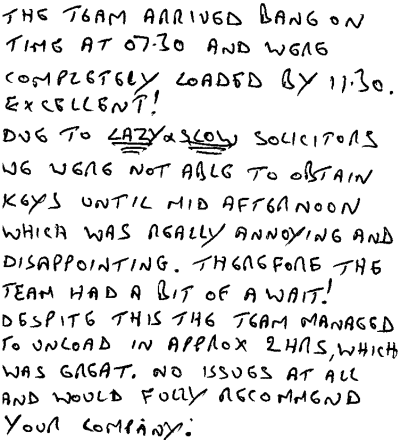 THE TEAM ARRIVED BANG ON
TIME AT 07.30 AND WERE
COMPLETELY LOADED BY 11.30.
EXCELLENT!
DUE TO LAZY & SLOW SOLICITORS
WE WERE NOT ABLE TO OBTAIN
KEYS UNTIL MID AFTERNOON
WHICH WAS REALLY ANNOYING AND
DISAPPOINTING. THEREFORE THE
TEAM HAD A BIT OF A WAIT!
DESPITE THIS THE TEAM MANAGED
TO UNLOAD IN APPROX 2HRS, WHICH
WAS GREAT. NO ISSUES AT ALL
AND WOULD FULLY RECOMMEND
YOUR COMPANY.